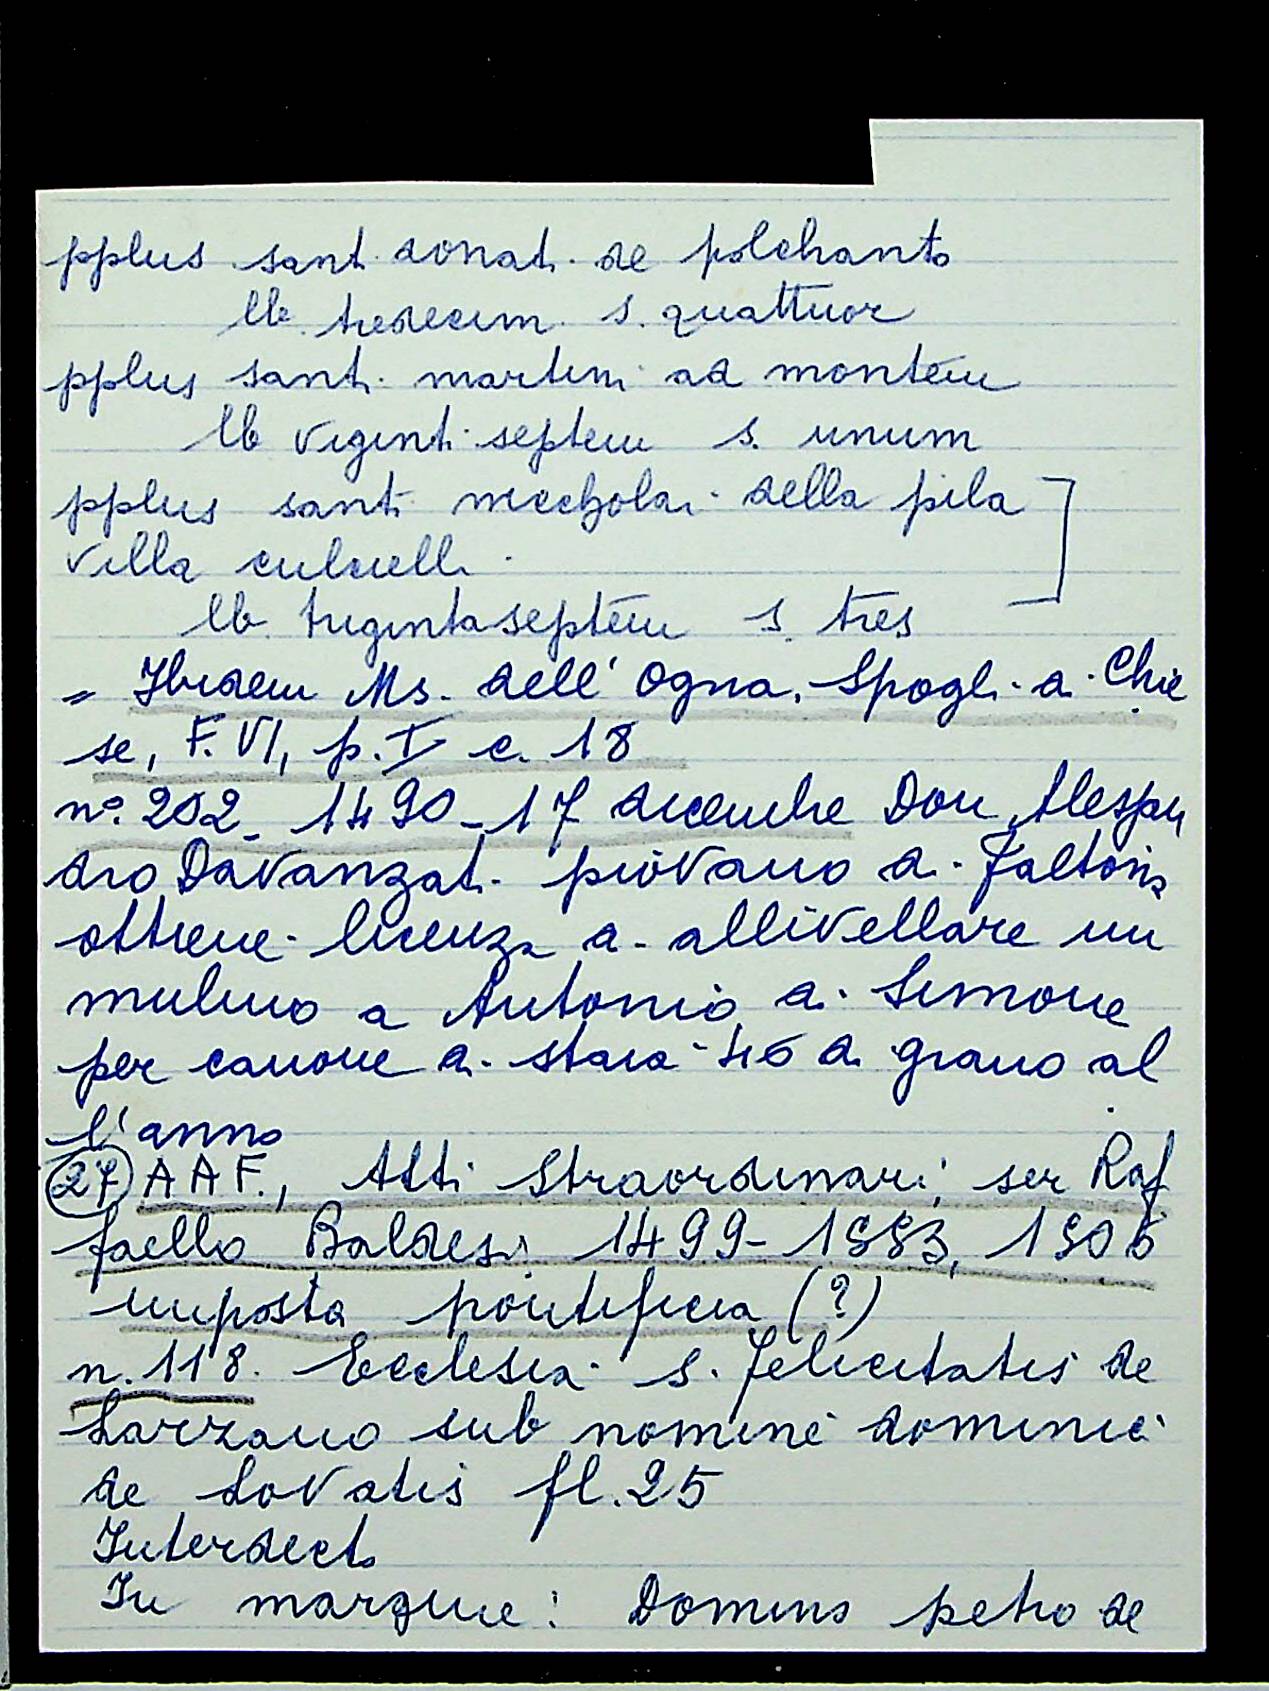 pplus sant donati de polchanto
lb. tredecim s. quattuor
pplus santi martini ad montem
lb viginti septem s. unum
pplus santi niccholai della pila
villa culcelli
lb trigintaseptem s. tres
= Ibidem Ms. dell'Ogna, Spogli di Chie
se, F. VI, p. I c. 18
n° 202 - 1490 - 17 dicembre Don Alessan
dro Davanzati piovano di Faltona
ottiene licenza di allivellare un
mulino a Antonio di Simone
per canone di staia 46 di grano al
l'anno
(27) A A F., Atti Straordinari, ser Raf
faello Baldesi 1499-1553, 1506
imposta pontificia (?)
n. 118. Ecclesia S. Felicitatis de
Larzano sub nomine dominici
de Lovatis fl. 25
Interdecto
In margine: Domino petro de